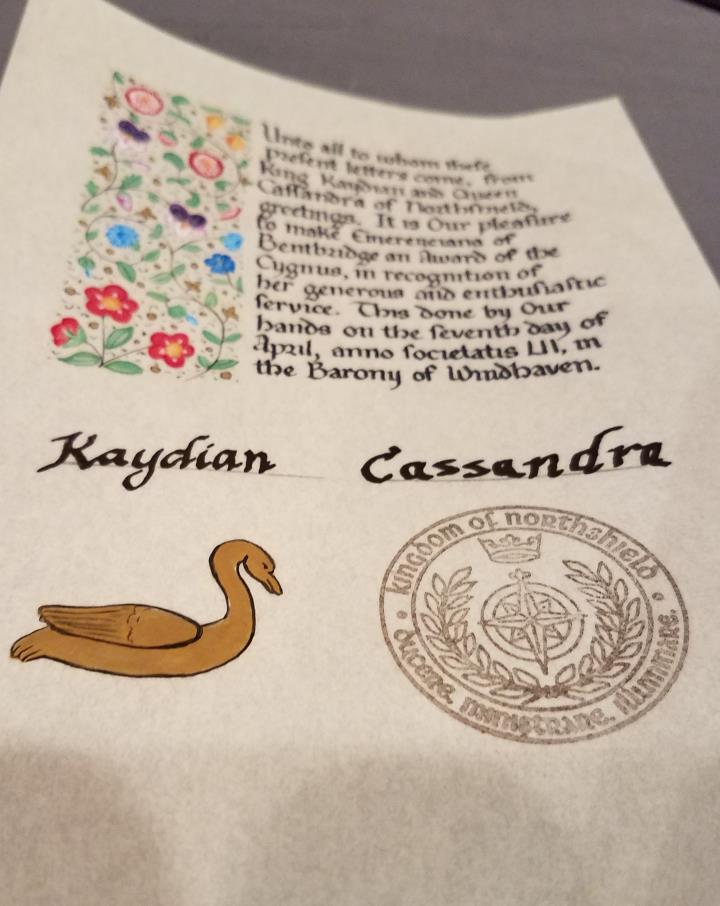 Unto all to whom these
present letters come, from
King Kaydian and Queen
Cassandra of Northshield,
greetings. It is Our pleasure
to make Emerenciana of
Bentbridge an Award of the
Cygnus, in recognition of
her generous and enthusiastic
service. This done by Our
hands on the seventh day of
April, anno societatis LIII, in
the Barony of Windhaven.
Kaydian Cassandra
kingdom of northshield
ducere. ministrare. illuminare.